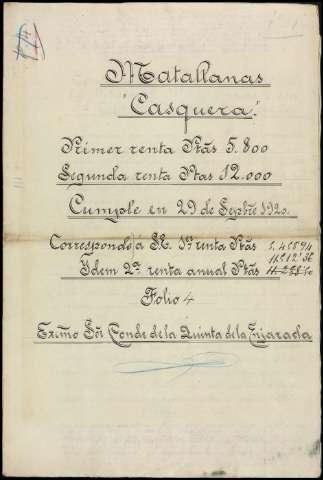 Matallanas
"Casquera".
Primer renta Ptas 5.800
Segunda renta Ptas 12.000
Cumple en 29 de Sepbre 1920.
Corresponde á S.E. 1ª renta Ptas
Ydem 2ª renta anual Ptas
Folio 4
Exmo Sor Conde de la Quinta de la Enjarada